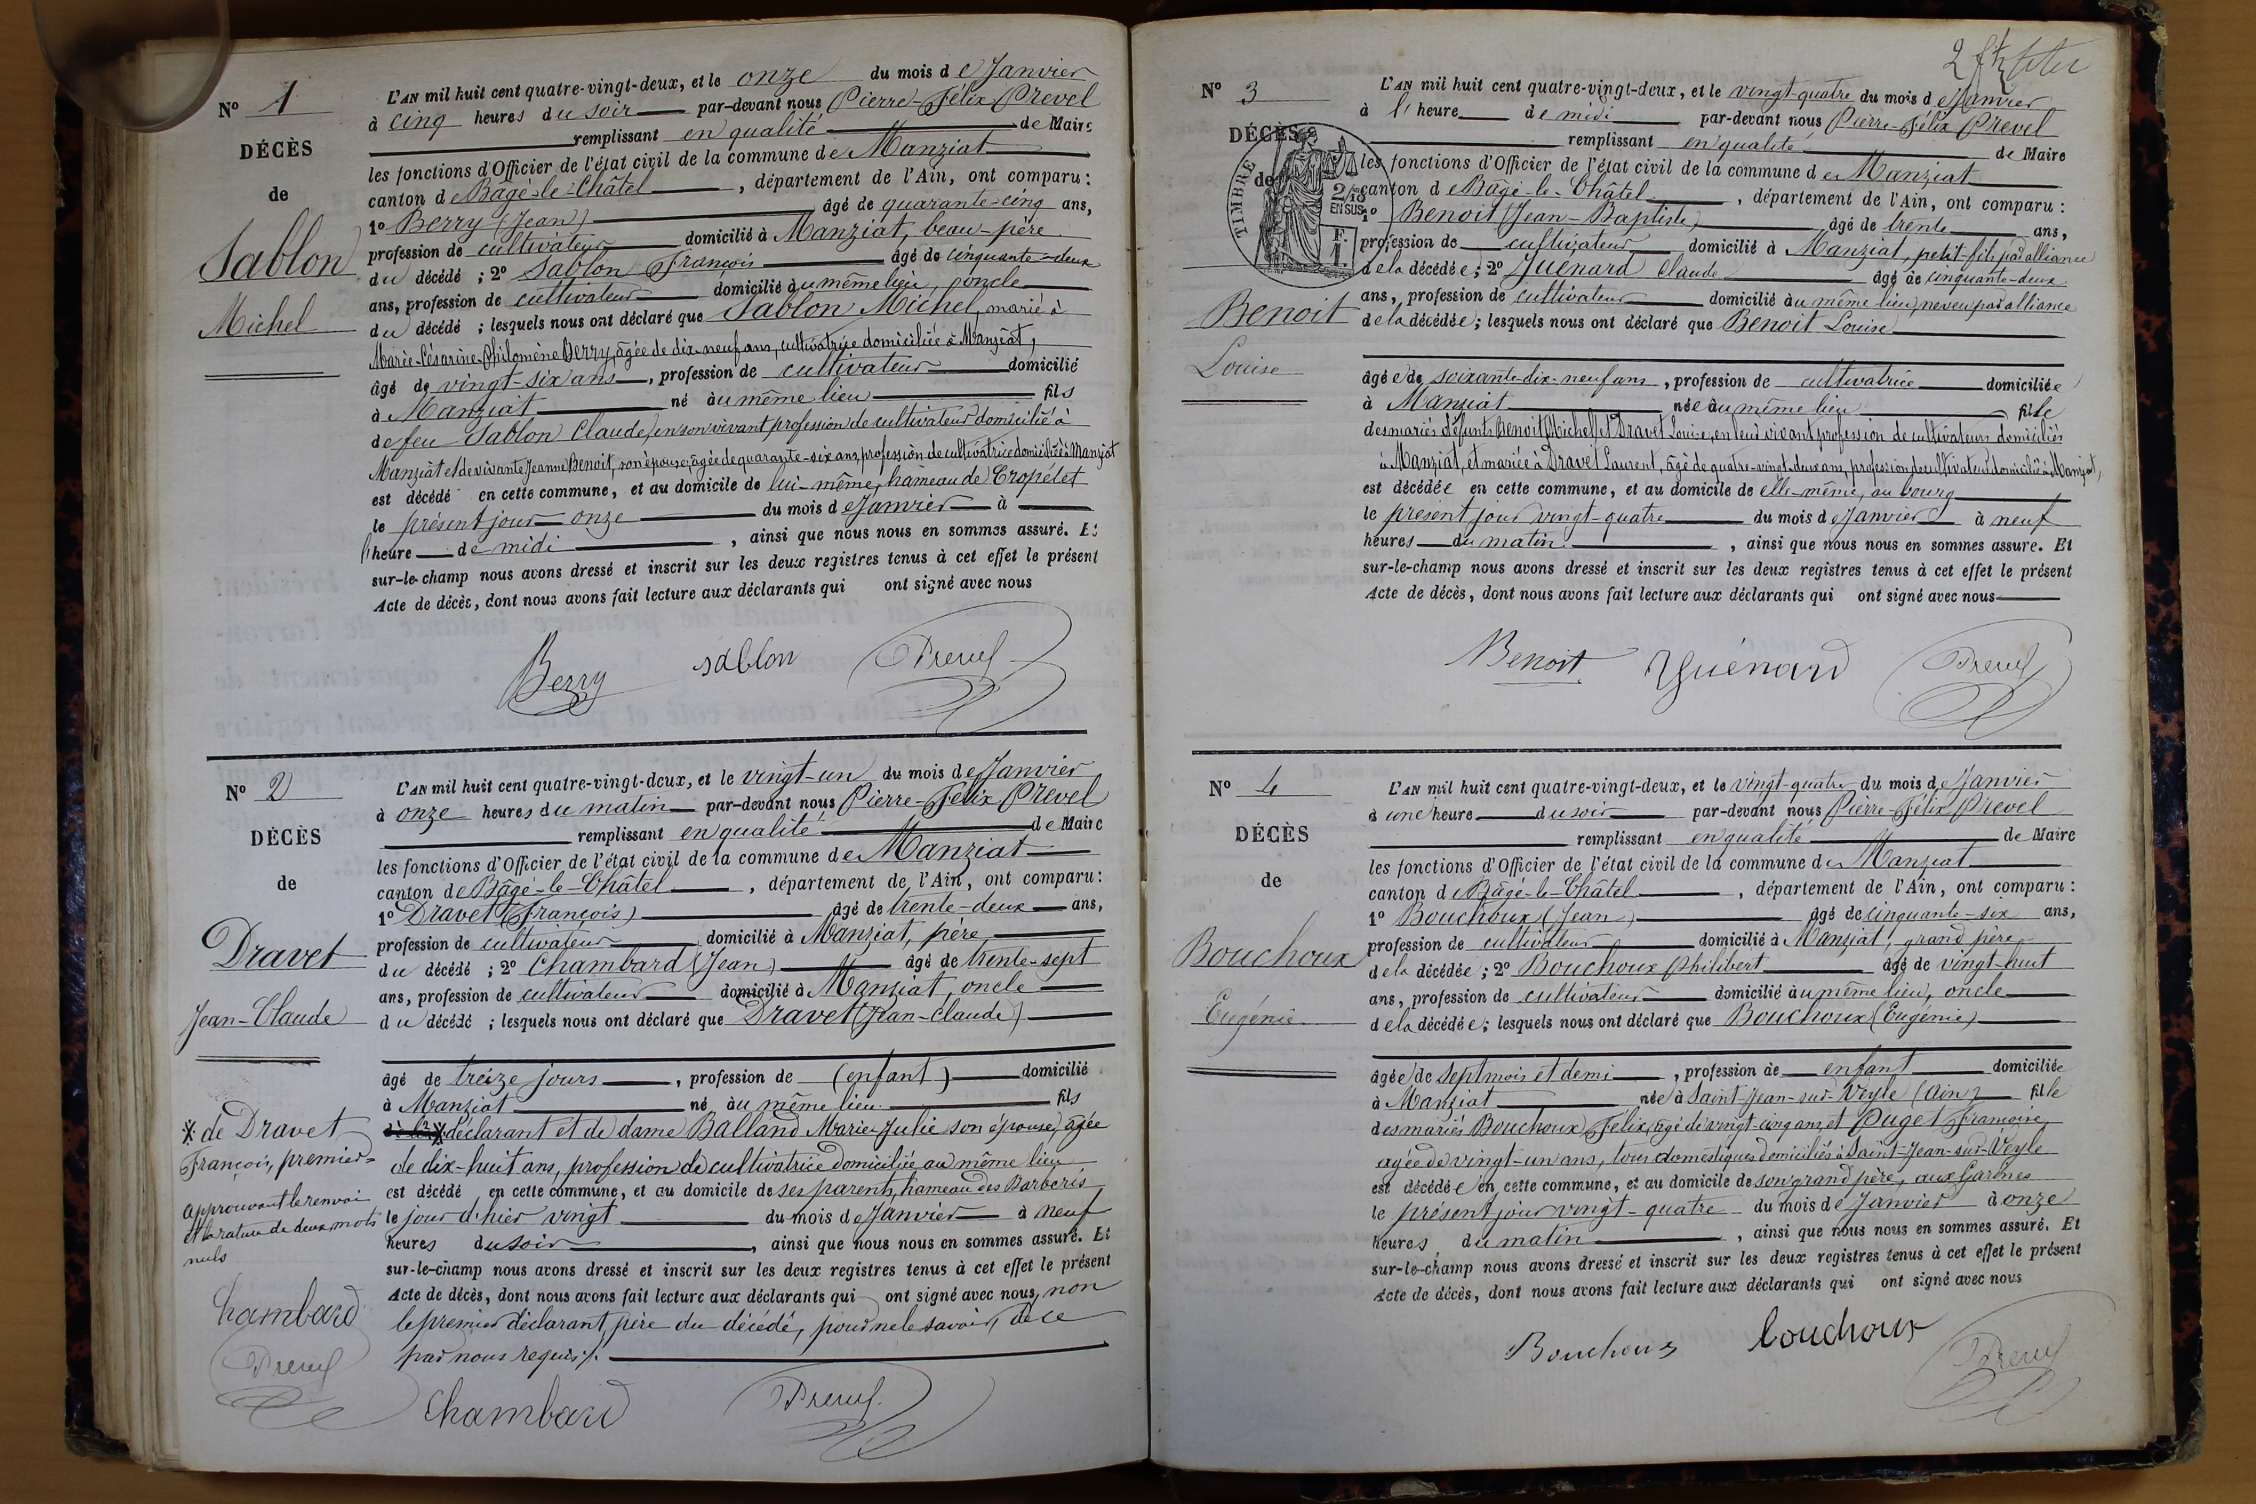 N° 1
DÉCÈS
de
Sablon
Michel
L'AN mil huit cent quatre-vingt-deux, et le onze du mois de Janvier
à cinq heures du soir par-devant nous Pierre-Félix Prevel
remplissant en qualité de Maire
les fonctions d'Officier de l'état civil de la commune de Manziat
canton de Bâgé-le-Châtel, département de l'Ain, ont comparu :
1° Berry (Jean) âgé de quarante-cinq ans,
profession de cultivateur domicilié à Manziat, beau-père
du décédé ; 2° Sablon François âgé de cinquante-deux
ans, profession de cultivateur domicilié au même lieu, oncle
du décédé ; lesquels nous ont déclaré que Sablon Michel, marié à
Marie-Césarine-Philomène Berry, âgée de dix-neuf ans, cultivatrice domiciliée à Manziat,
âgé de vingt-six ans, profession de cultivateur domicilié
à Manziat né au même lieu fils
de feu Sablon Claude, en son vivant profession de cultivateur domicilié à
Manziat et de vivante Jeanne Benoit, son épouse, âgée de quarante-six ans, profession de cultivatrice domiciliée à Manziat
est décédé en cette commune, et au domicile de lui-même, hameau de Cropétet
le présent jour onze du mois de Janvier à
l'heure de midi, ainsi que nous nous en sommes assuré. Et
sur-le-champ nous avons dressé et inscrit sur les deux registres tenus à cet effet le présent
Acte de décès, dont nous avons fait lecture aux déclarants qui ont signé avec nous
Berry sablon Prevel
N° 2
DÉCÈS
de
Dravet
Jean-Claude
L'AN mil huit cent quatre-vingt-deux, et le vingt-un du mois de Janvier
à onze heures du matin par-devant nous Pierre-Félix Prevel
remplissant en qualité de Maire
les fonctions d'Officier de l'état civil de la commune de Manziat
canton de Bâgé-le-Châtel, département de l'Ain, ont comparu :
1° Dravet (François) âgé de trente-deux ans,
profession de cultivateur domicilié à Manziat, père
du décédé ; 2° Chambard (Jean) âgé de trente-sept
ans, profession de cultivateur domicilié à Manziat, oncle
du décédé ; lesquels nous ont déclaré que Dravet (Jean-Claude)
âgé de treize jours, profession de (enfant) domicilié
à Manziat né au même lieu fils
déclarant et de dame Balland Marie-Julie son épouse, âgée
de dix-huit ans, profession de cultivatrice domiciliée au même lieu
est décédé en cette commune, et au domicile de ses parents, hameau des Barberis
le jour d'hier vingt du mois de Janvier à neuf
heures du soir, ainsi que nous nous en sommes assuré. Et
sur-le-champ nous avons dressé et inscrit sur les deux registres tenus à cet effet le présent
Acte de décès, dont nous avons fait lecture aux déclarants qui ont signé avec nous, non
le premier déclarant, père du décédé, pour ne le savoir, de ce
par nous requis ./.
Chambard Prevel
de Dravet
François, premier
approuvant le renvoi
et la rature de deux mots
nuls
Chambard
Prevel
N° 3
DÉCÈS
de
TIMBRE
2/10
EN SUS
F.
1.
Benoit
Louise
L'AN mil huit cent quatre-vingt-deux, et le vingt-quatre du mois de Janvier
à l'heure de midi par-devant nous Pierre-Félix Prevel
remplissant en qualité de Maire
les fonctions d'Officier de l'état civil de la commune de Manziat
canton de Bâgé-le-Châtel, département de l'Ain, ont comparu :
1° Benoit (Jean-Baptiste) âgé de trente ans,
profession de cultivateur domicilié à Manziat, petit-fils par alliance
de la décédée ; 2° Guénard Claude âgé de cinquante-deux
ans, profession de cultivateur domicilié au même lieu, neveu par alliance
de la décédée ; lesquels nous ont déclaré que Benoit Louise
âgée de soixante-dix-neuf ans, profession de cultivatrice domiciliée
à Manziat née au même lieu fille
des mariés défunts Benoit (Michel) et Dravet Louise, en leur vivant profession de cultivateurs domiciliés
à Manziat, et mariée à Dravet Laurent, âgé de quatre-vingt-deux ans, profession de cultivateur domicilié à Manziat,
est décédée en cette commune, et au domicile de elle-même, au bourg
le présent jour vingt-quatre du mois de Janvier à neuf
heures du matin, ainsi que nous nous en sommes assuré. Et
sur-le-champ nous avons dressé et inscrit sur les deux registres tenus à cet effet le présent
Acte de décès, dont nous avons fait lecture aux déclarants qui ont signé avec nous
Benoit Guénard Prevel
N° 4
DÉCÈS
de
Bouchoux
Eugénie
L'AN mil huit cent quatre-vingt-deux, et le vingt-quatre du mois de Janvier
à une heure du soir par-devant nous Pierre-Félix Prevel
remplissant en qualité de Maire
les fonctions d'Officier de l'état civil de la commune de Manziat
canton de Bâgé-le-Châtel, département de l'Ain, ont comparu :
1° Bouchoux (Jean) âgé de cinquante-six ans,
profession de cultivateur domicilié à Manziat, grand père
de la décédée ; 2° Bouchoux Philibert âgé de vingt-huit
ans, profession de cultivateur domicilié au même lieu, oncle
de la décédée ; lesquels nous ont déclaré que Bouchoux (Eugénie)
âgée de sept mois et demi, profession de enfant domiciliée
à Manziat née à Saint-Jean-sur-Veyle (Ain) fille
des mariés Bouchoux Félix, âgé de vingt-cinq ans, et Puget Françoise,
agée de vingt-un ans, tous domestiques domiciliés à Saint-Jean-sur-Veyle
est décédée en cette commune, et au domicile de son grand père, aux
le présent jour vingt-quatre du mois de Janvier à onze
heures du matin, ainsi que nous nous en sommes assuré. Et
sur-le-champ nous avons dressé et inscrit sur les deux registres tenus à cet effet le présent
Acte de décès, dont nous avons fait lecture aux déclarants qui ont signé avec nous
Bouchoux bouchoux Prevel